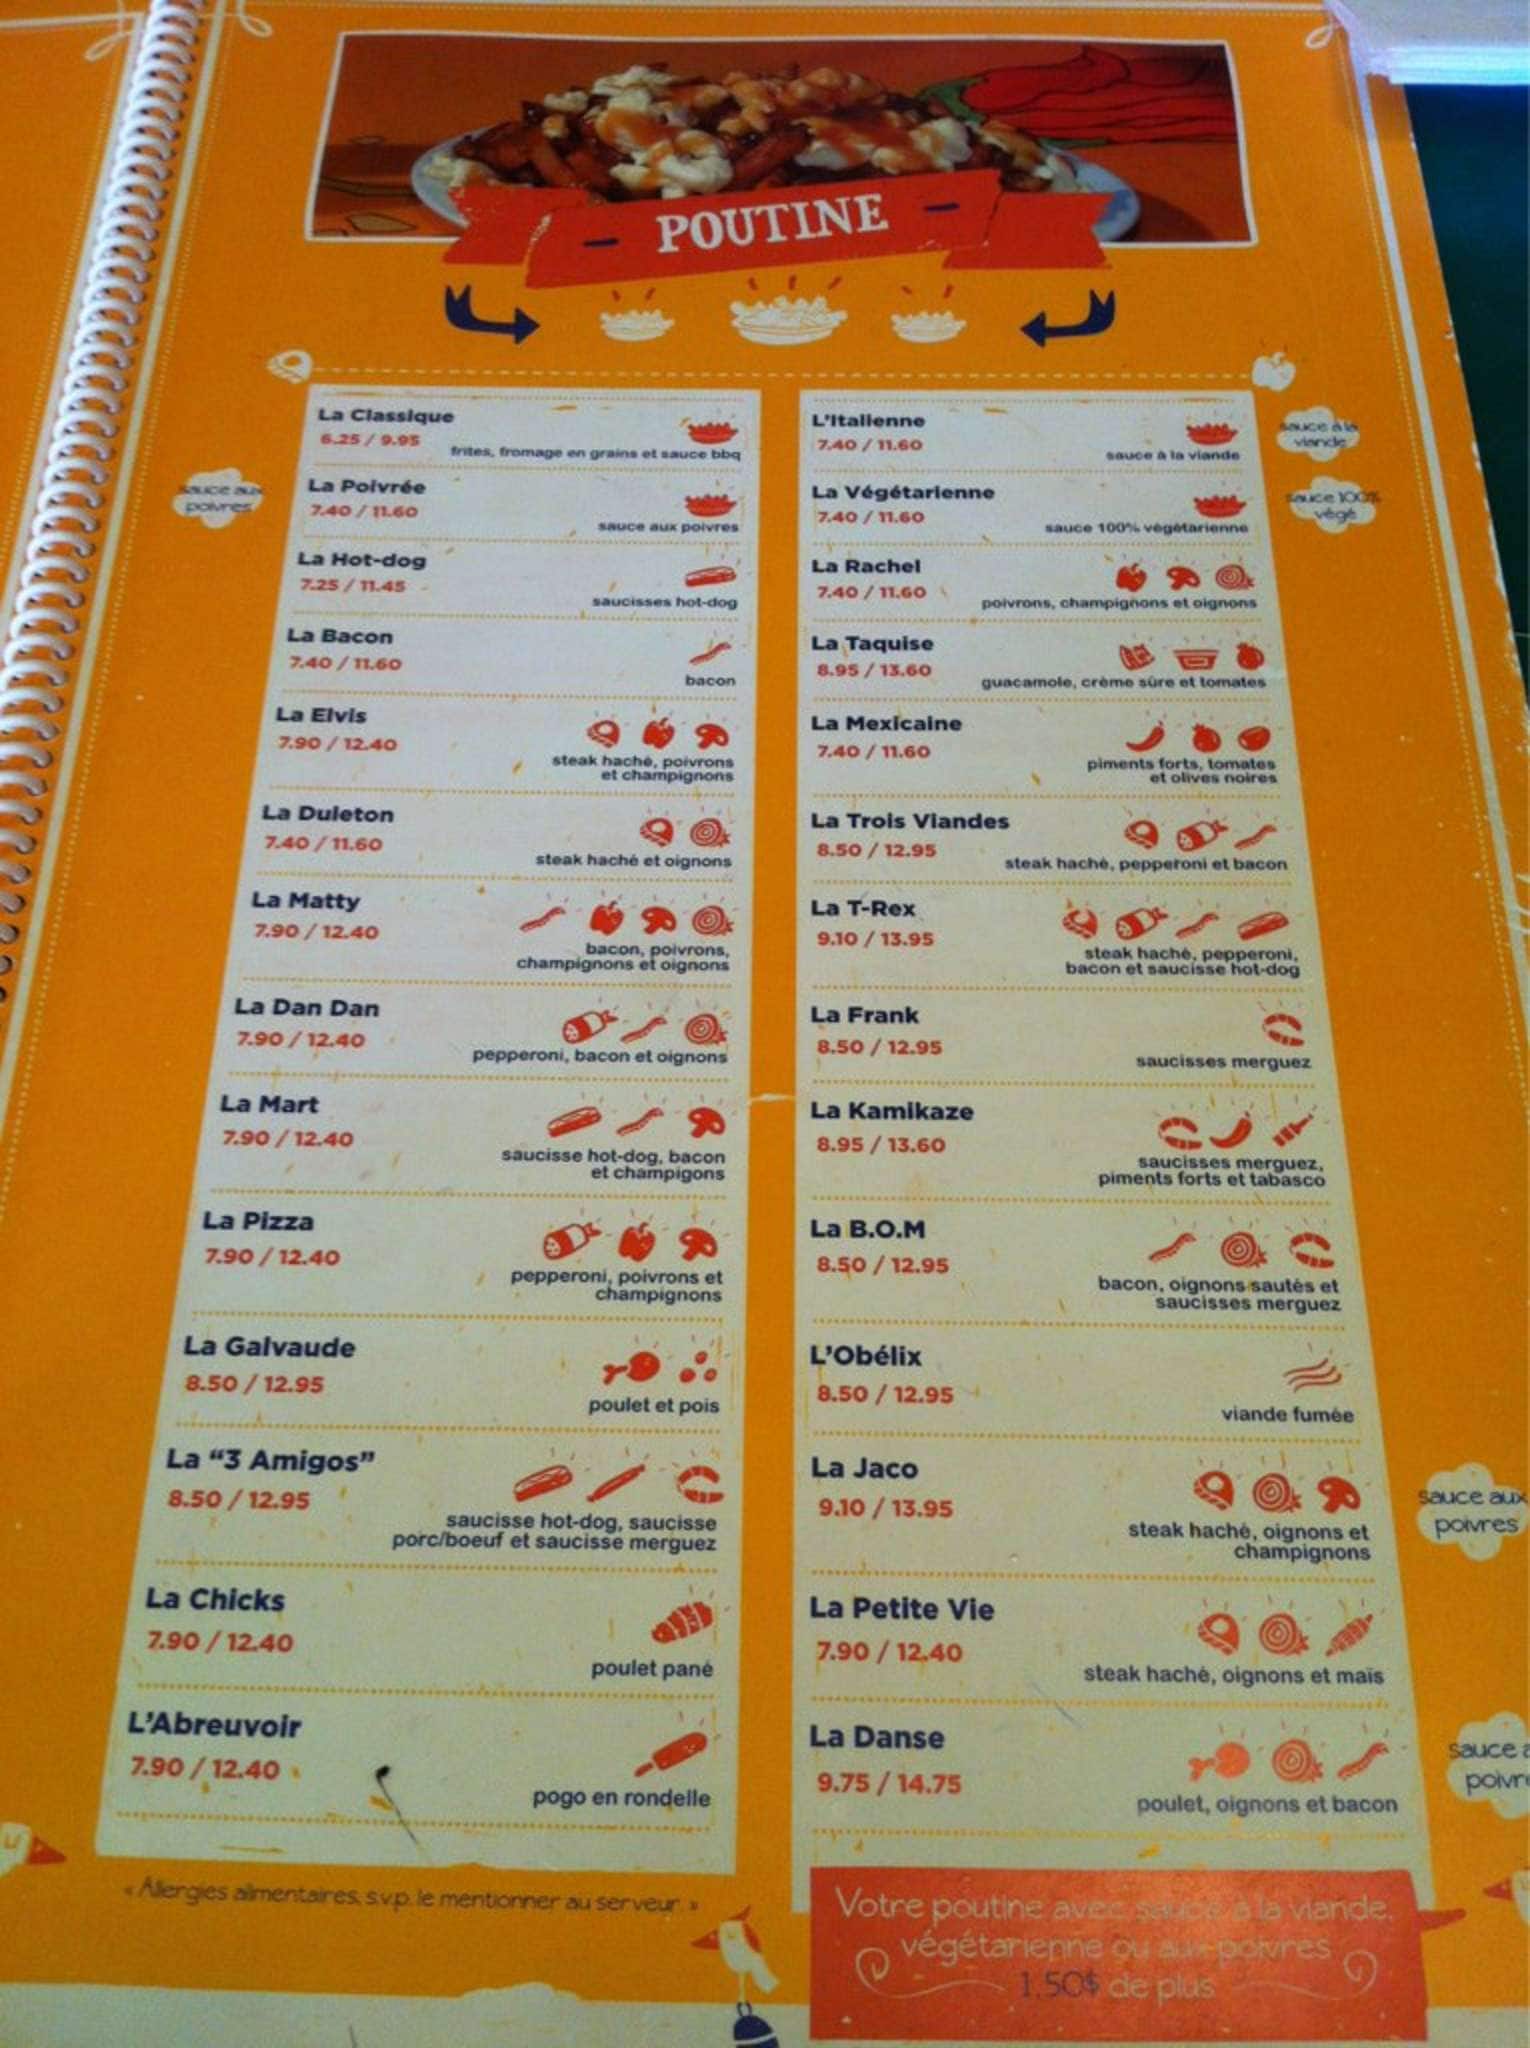 POUTINE
La Classique
6.25 / 9.95
frites, fromage en grains et sauce bbq
sauce aux
poivres
La Poivrée
7.40 / 11.60
sauce aux poivres
La Hot-dog
7.25 / 11.45
saucisses hot-dog
La Bacon
7.40 / 11.60
bacon
La Elvis
7.90 / 12.40
steak haché, poivrons
et champignons
La Duleton
7.40 / 11.60
steak haché et oignons
La Matty
7.90 / 12.40
bacon, poivrons,
champignons et oignons
La Dan Dan
7.90 / 12.40
pepperoni, bacon et oignons
La Mart
7.90 / 12.40
saucisse hot-dog, bacon
et champigons
La Pizza
7.90 / 12.40
pepperoni, poivrons et
champignons
La Galvaude
8.50 / 12.95
poulet et pois
La "3 Amigos"
8.50 / 12.95
saucisse hot-dog, saucisse
porc/boeuf et saucisse merguez
La Chicks
7.90 / 12.40
poulet pané
L'Abreuvoir
7.90 / 12.40
pogo en rondelle
« Allergies alimentaires, s.v.p. le mentionner au serveur. »
L'Italienne
7.40 / 11.60
sauce à la viande
sauce à la
viande
La Végétarienne
7.40 / 11.60
sauce 100% végétarienne
sauce 100%
végé
La Rachel
7.40 / 11.60
poivrons, champignons et oignons
La Taquise
8.95 / 13.60
guacamole, crème sûre et tomates
La Mexicaine
7.40 / 11.60
piments forts, tomates
et olives noires
La Trois Viandes
8.50 / 12.95
steak haché, pepperoni et bacon
La T-Rex
9.10 / 13.95
steak haché, pepperoni,
bacon et saucisse hot-dog
La Frank
8.50 / 12.95
saucisses merguez
La Kamikaze
8.95 / 13.60
saucisses merguez,
piments forts et tabasco
La B.O.M
8.50 / 12.95
bacon, oignons sautés et
saucisses merguez
L'Obélix
8.50 / 12.95
viande fumée
La Jaco
9.10 / 13.95
steak haché, oignons et
champignons
sauce aux
poivres
La Petite Vie
7.90 / 12.40
steak haché, oignons et maïs
La Danse
9.75 / 14.75
poulet, oignons et bacon
sauce
Votre poutine avec sauce à la viande,
végétarienne ou aux poivres
1,50$ de plus